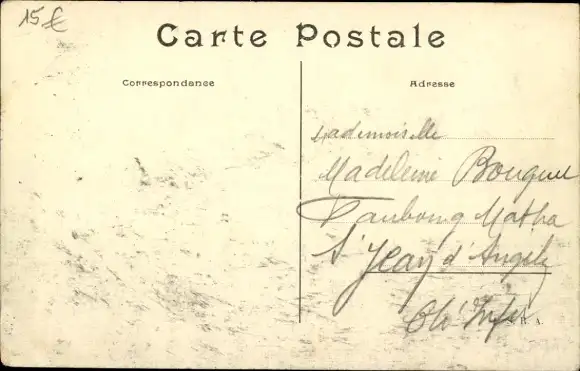 15€
Carte Postale
Correspondance
Adresse
Mademoiselle
Madeleine Bouquet
Faubourg Matha
St Jean d'Angely
Ch. Infre